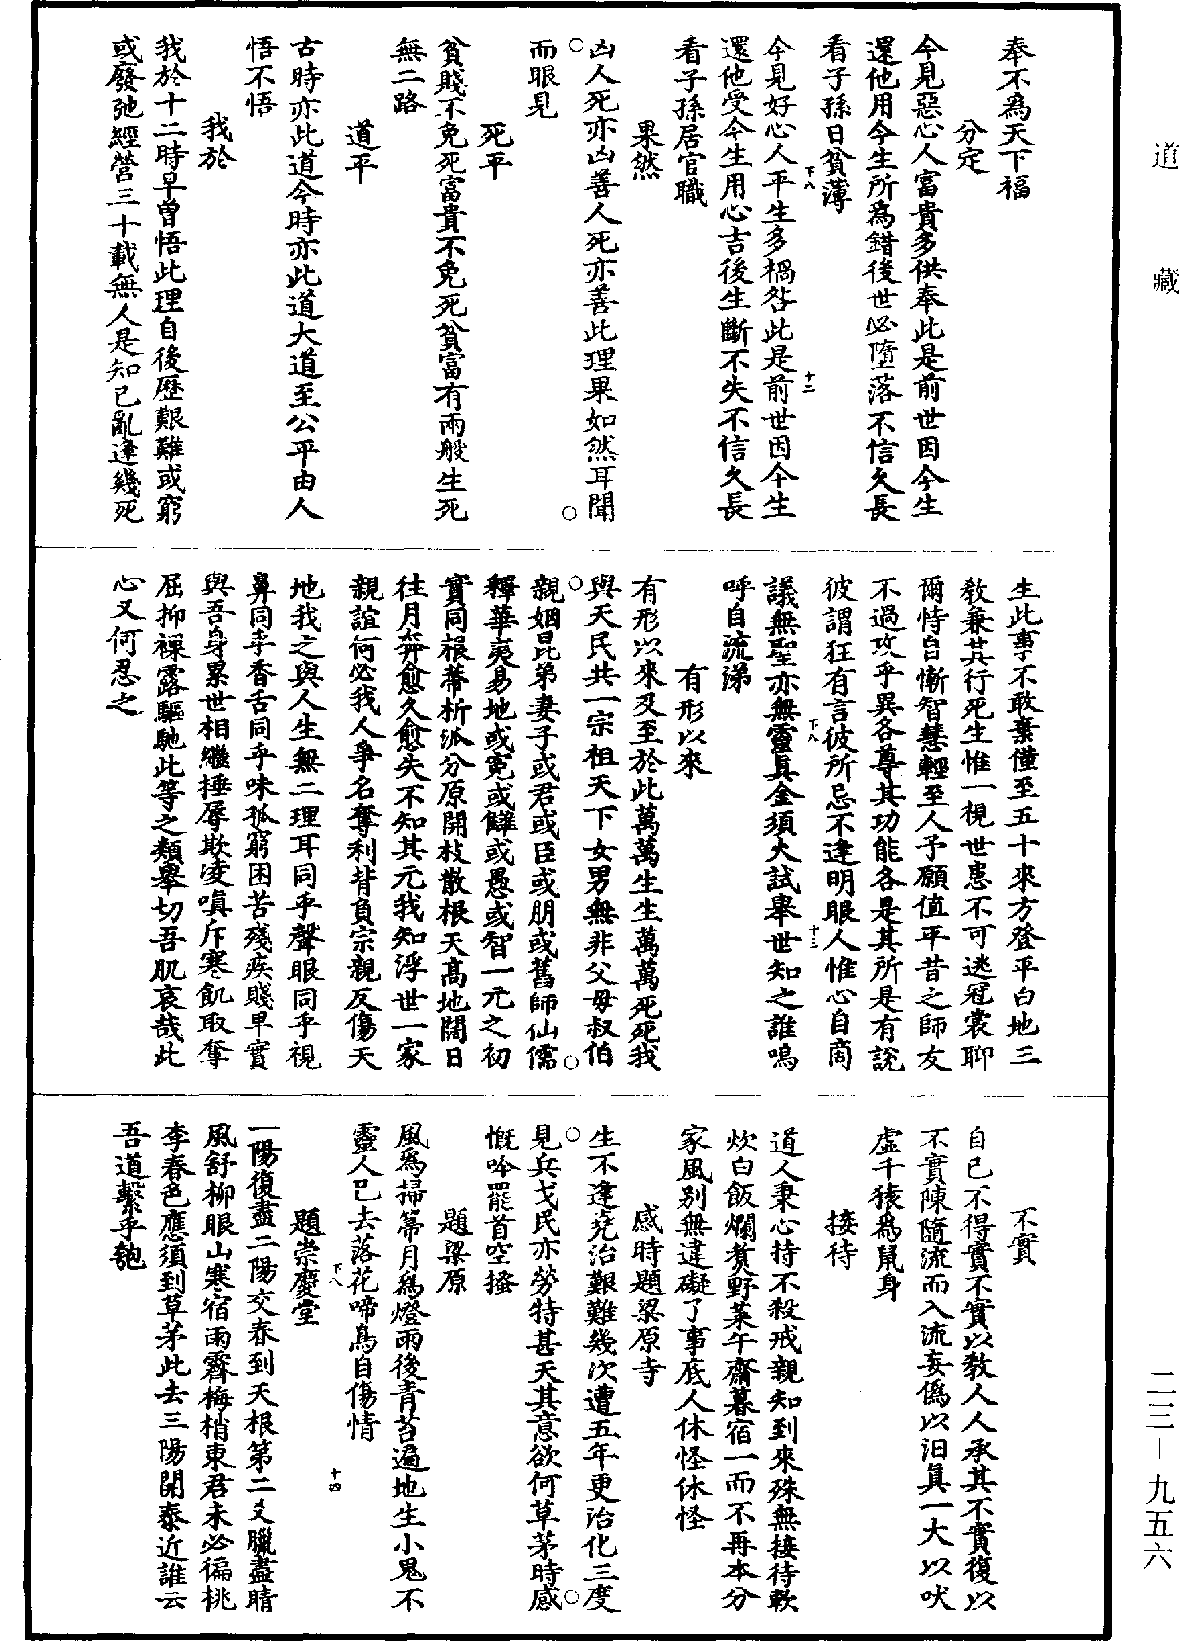 道藏
奉不為天下福
分定
今見惡心人富貴多供奉此是前世因今生
還他用今生所為錯後世必墮落不信久長
看子孫日貧薄
下八
十二
今見好心人平生多禍咎此是前世因今生
還他受今生用心吉後生斷不失不信久長
看子孫居官職
果然
凶人死亦凶善人死亦善此理果如然耳聞
而眼見
死平
貧賤不免死富貴不免死貧富有兩般生死
無二路
道平
古時亦此道今時亦此道大道至公平由人
悟不悟
我於
我於十二時早曾悟此理自後歷艱難或窮
或廢弛經營三十載無人是知已亂逢幾死
生此事不敢棄僅至五十來方登平白地三
教兼其行死生惟一視世患不可逃冠裳聊
爾恃自慚智慧輕至人予願值平昔之師友
不過攻乎異各尊其功能各是其所是有說
彼謂狂有言彼所忌不逢明眼人惟心自商
下八
十三
議無聖亦無靈真金須大試舉世知之誰嗚
呼自流涕
有形以來
有形以來及至於此萬萬生生萬萬死死我
與天民共一宗祖天下女男無非父母叔伯
親姻昆弟妻子或君或臣或朋或舊師仙儒
釋華夷易地或冤或讎或愚或智一元之初
實同根蒂析派分原開枝散根天高地闊日
往月奔愈久愈失不知其元我知浮世一家
親誼何必我人爭名奪利背負宗親反傷天
地我之與人生無二理耳同乎聲眼同乎視
鼻同乎香舌同乎味孤窮困苦殘疾賤卑實
與吾身累世相繼捶辱欺凌嗔斥寒飢取奪
屈抑裸露驅馳此等之類舉切吾肌哀哉此
心又何忍之
不實
自己不得實不實以教人人承其不實復以
不實陳隨流而入流妄偽以汨真一犬以吠
虛千猿為鼠身
接待
道人秉心持不殺戒親知到來殊無接待軟
炊白飯爛煑野菜午齋暮宿一而不再本分
家風別無違礙了事底人休怪休怪
感時題梁原寺
生不逢堯治艱難幾次遭五年更治化三度
見兵戈民亦勞特甚天其意欲何草茅時感
慨吟罷首空搔
題梁原
風為掃箒月為燈雨後青苔遍地生小鬼不
靈人已去落花啼鳥自傷情
下八
十四
題崇慶堂
一陽復盡二陽交春到天根第二爻臘盡晴
風舒柳眼山寒宿雨霽梅梢東君未必偏桃
李春色應須到草茅此去三陽開泰近誰云
吾道繫乎匏
二三—九五六